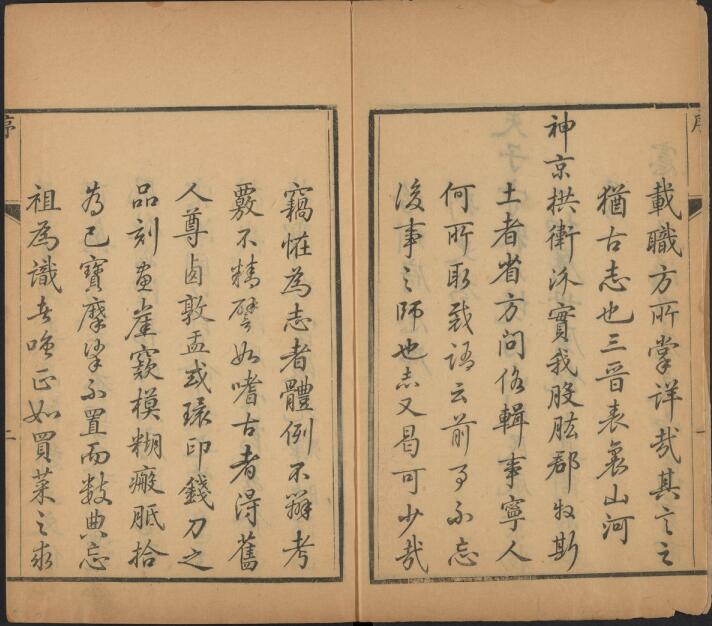 載職方所掌詳哉其言之
猶古志也三晉表裏山河
神京拱衛汾實我股肱郡牧斯
土者省方問俗輯事寧人
何所取裁語云前事不忘
後事之師也志又曷可少哉
竊恠為志者體例不辯考
覈不精譬如嗜古者得舊
人尊卣敦盂或環印錢刀之
品刻畫崖窾模糊瘢胝拾
為己寶摩挲不置而數典忘
祖為識者嗤正如買菜之求
序
序
一
二